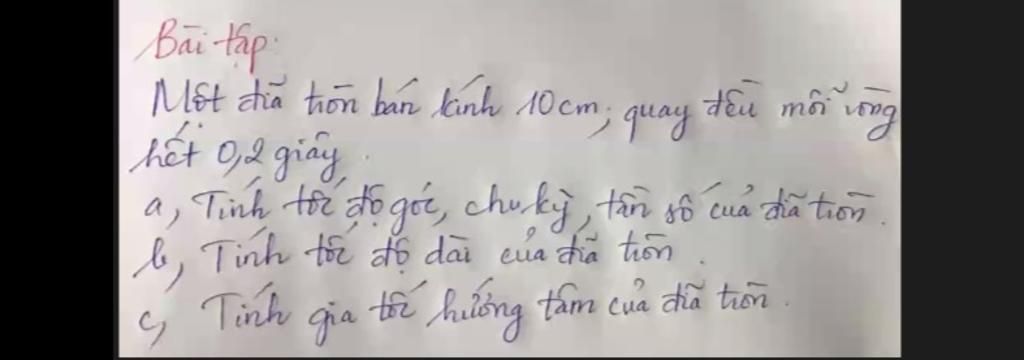 Bài tập:
Một đĩa tròn bán kính 10cm; quay đều mỗi vòng
hết 0,2 giây.
a, Tính tốc độ góc, chu kỳ, tần số của đĩa tròn.
b, Tính tốc độ dài của đĩa tròn.
c, Tính gia tốc hướng tâm của đĩa tròn.